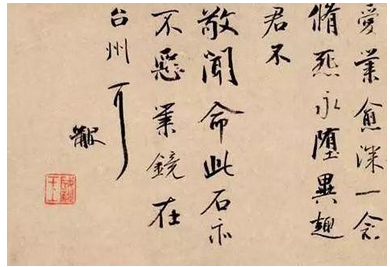 愛業愈深一念
脩然永墮異趣
君不
敢聞命此石亦
不惡業鏡在
台州可
黻